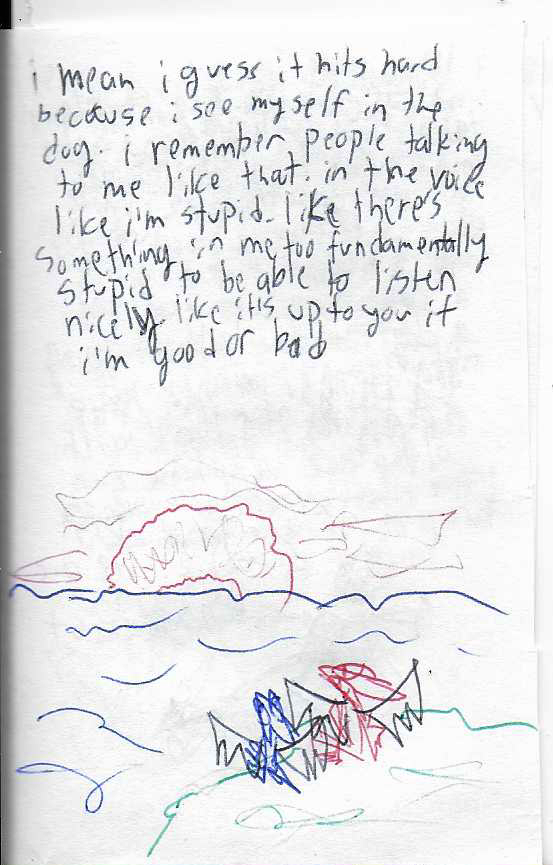 i mean i guess it hits hard
because i see myself in the
dog. i remember people talking
to me like that. in the voice
like i'm stupid. like there's
something in me too fundamentally
stupid to be able to listen
nicely. like it's up to you if
i'm good or bad